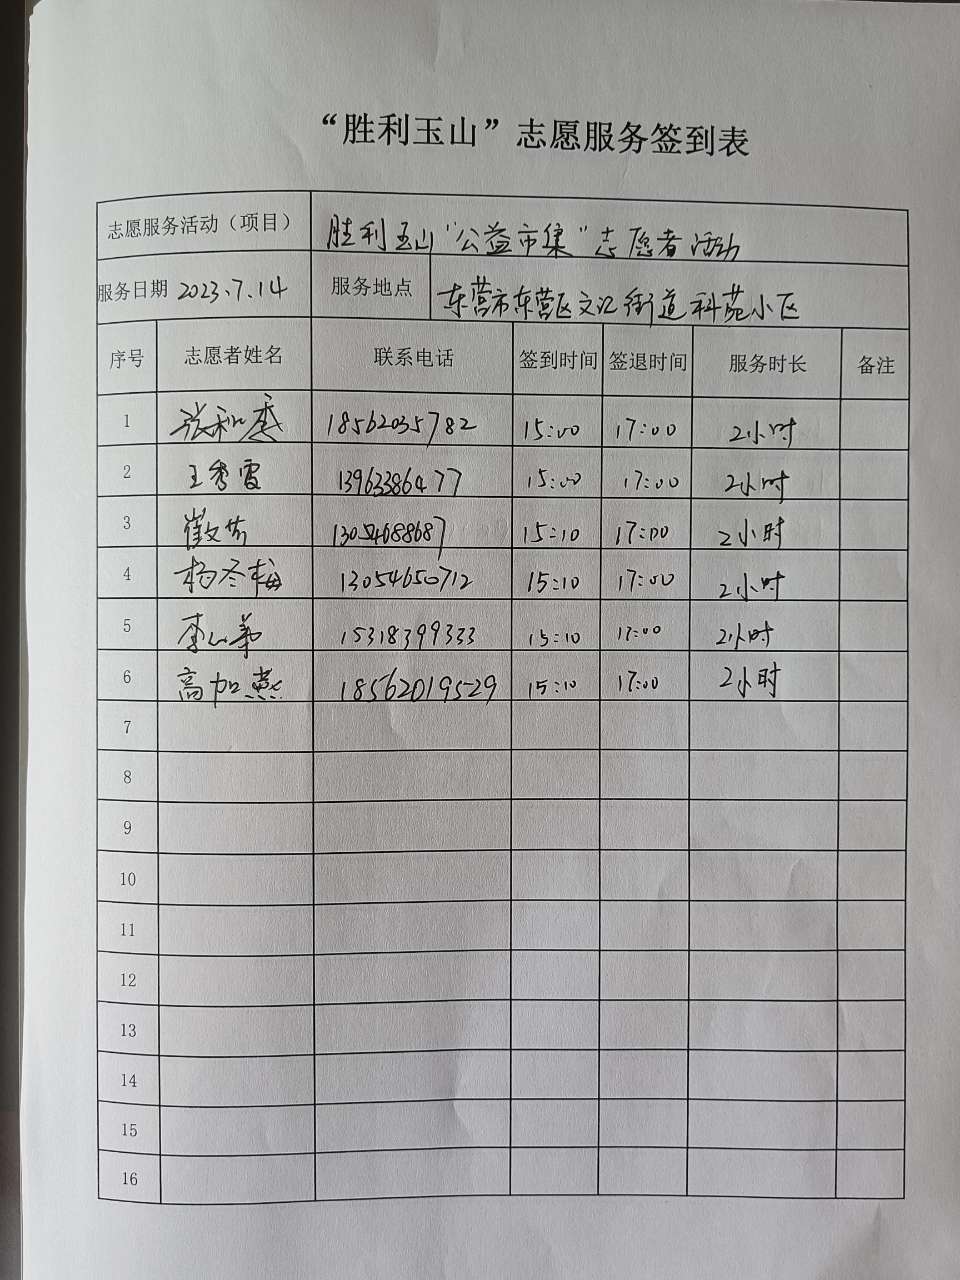 “胜利玉山”志愿服务签到表
志愿服务活动（项目） 胜利玉山“公益市集”志愿者活动
服务日期 2023.7.14 服务地点 东营市东营区文汇街道科苑小区
序号 志愿者姓名 联系电话 签到时间 签退时间 服务时长 备注
1 张和 18562035782 15:00 17:00 2小时
2 王秀霞 13963386477 15:00 17:00 2小时
3 崔文芳 13054688687 15:10 17:00 2小时
4 杨冬梅 13054650712 15:10 17:00 2小时
5 李 15318399333 15:10 17:00 2小时
6 高加燕 18562019529 15:10 17:00 2小时
7
8
9
10
11
12
13
14
15
16